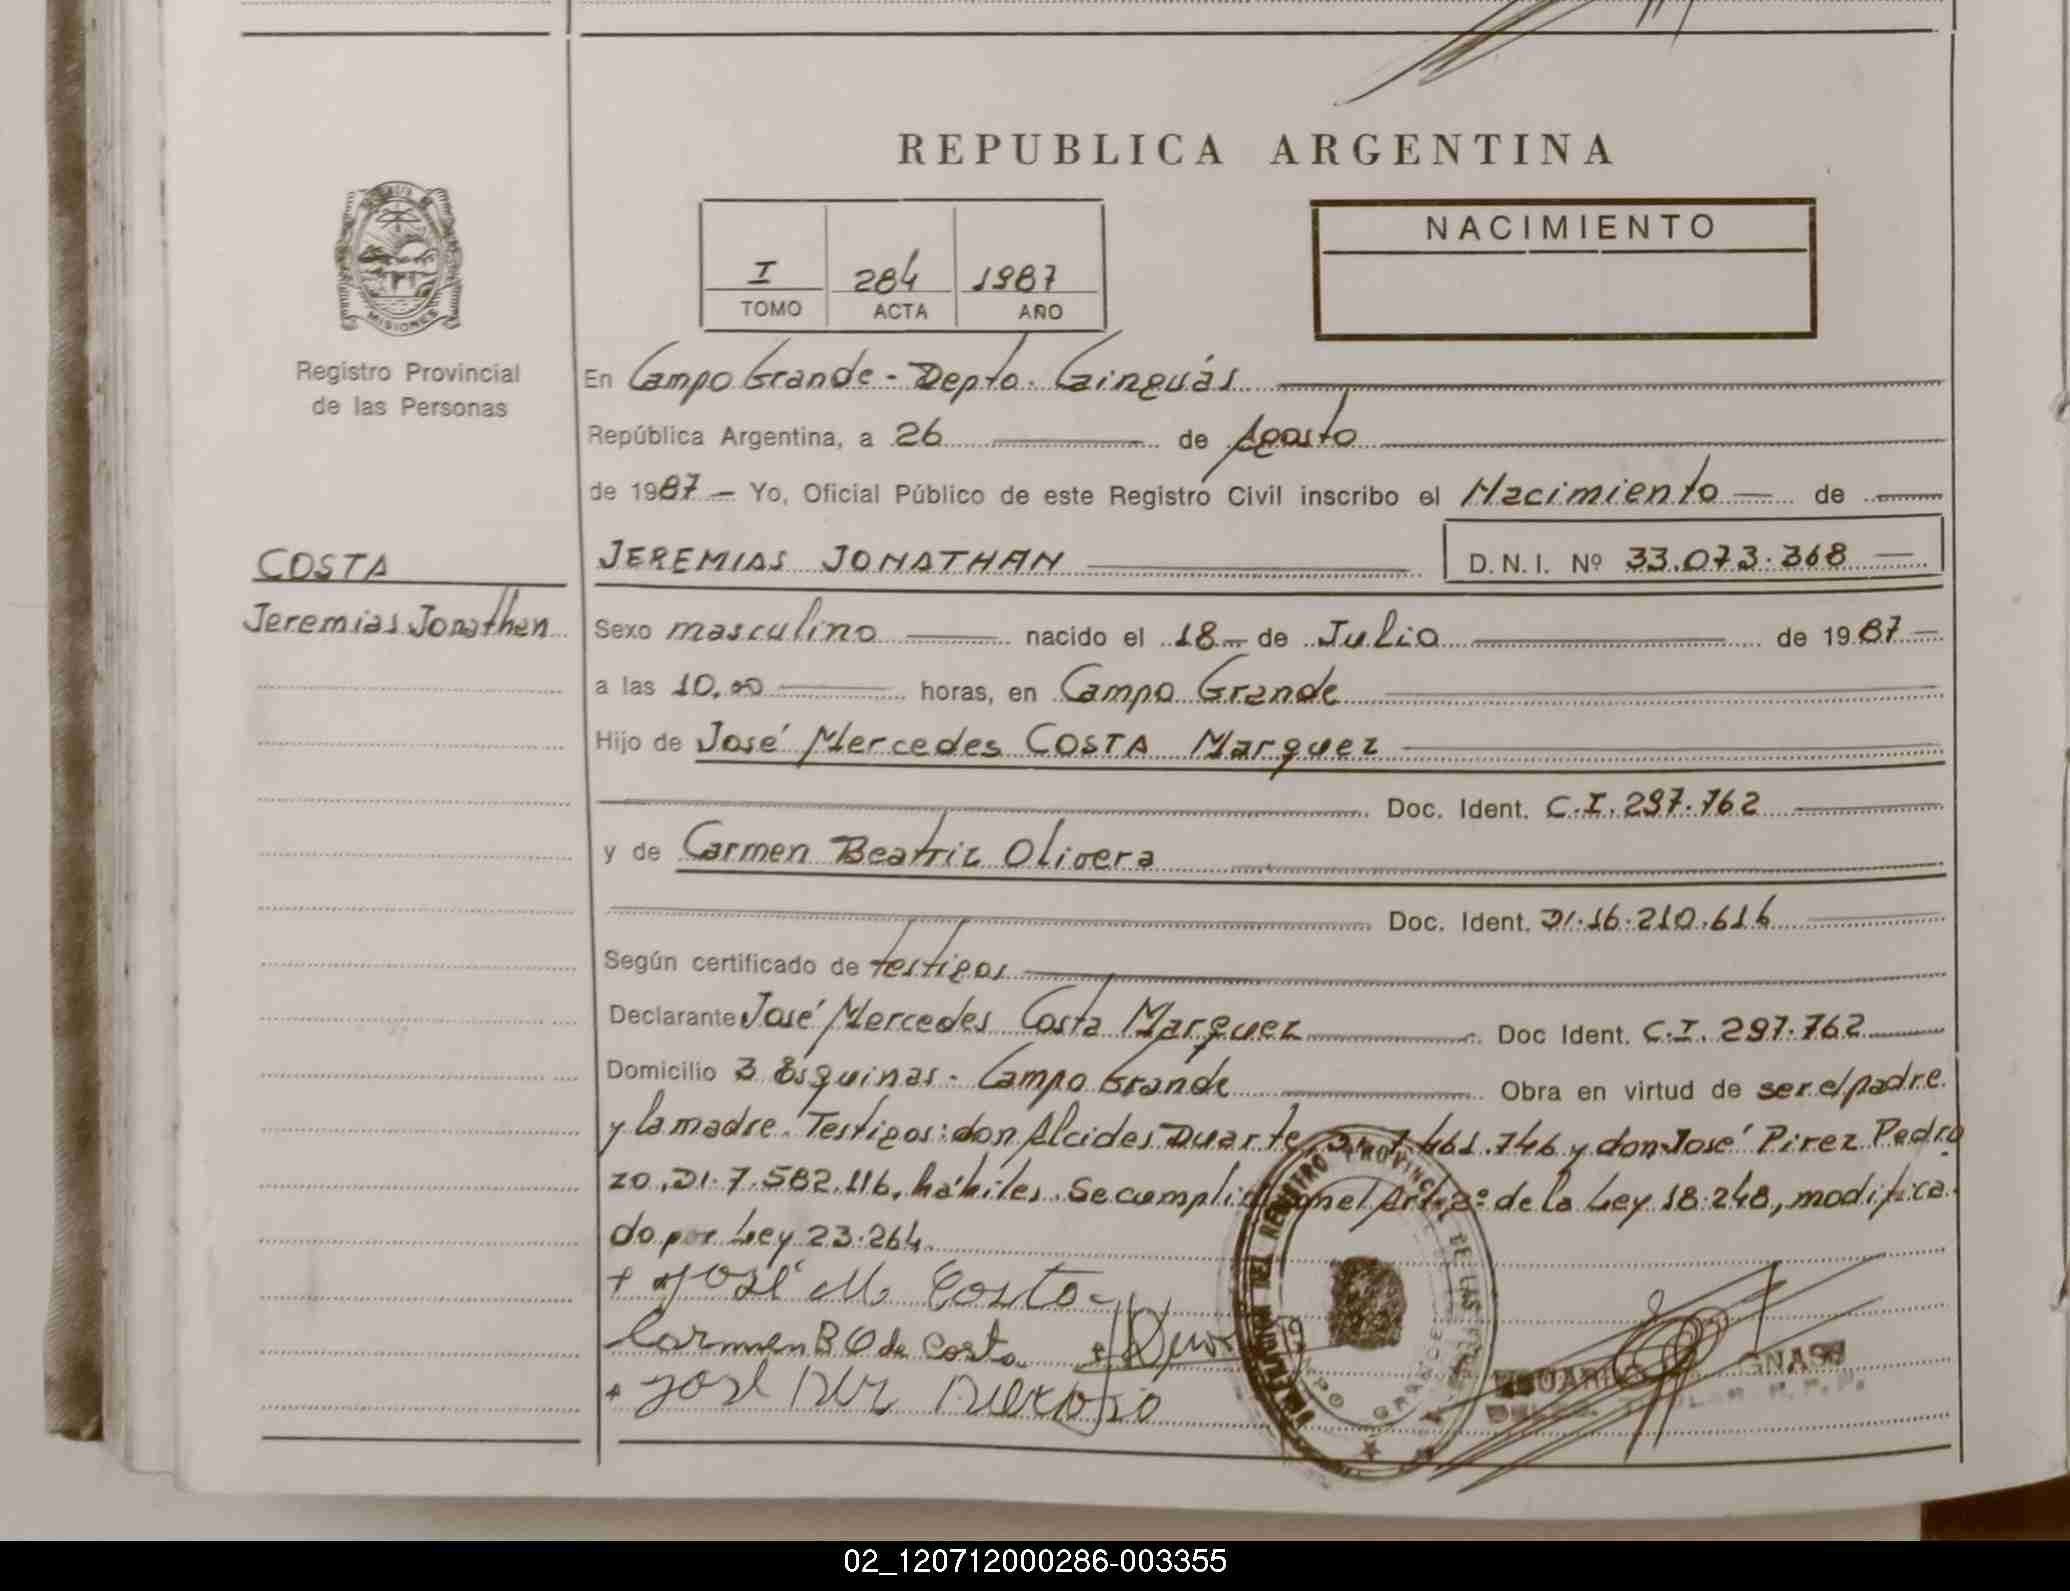 REPUBLICA ARGENTINA
MISIONES
Registro Provincial
de las Personas
I 284 1987
TOMO ACTA AÑO
NACIMIENTO
En Campo Grande - Depto. Cainguás
República Argentina, a 26 de Agosto
de 1987 - Yo, Oficial Público de este Registro Civil inscribo el Nacimiento de
COSTA
Jeremias Jonathan
JEREMIAS JONATHAN D.N.I. Nº 33.073.368
Sexo masculino nacido el 18 de Julio de 1987
a las 10,00 horas, en Campo Grande
Hijo de José Mercedes COSTA Marquez
Doc. Ident. C.I. 297.762
y de Carmen Beatriz Olivera
Doc. Ident. DI. 16.210.616
Según certificado de testigos
Declarante José Mercedes Costa Marquez Doc Ident. C.I. 297.762
Domicilio 3 Esquinas - Campo Grande Obra en virtud de ser el padre
y la madre. Testigos: don Alcides Duarte, 461.746 y don José Pirez Pedro
zo, DI. 7.582.116, hábiles. Se cumplió con el Art. 2º de la Ley 18.248, modifica
do por Ley 23.264.
+ José M. Costa
Carmen B O de Costa
+ José
CAMPO GRANDE
02_120712000286-003355